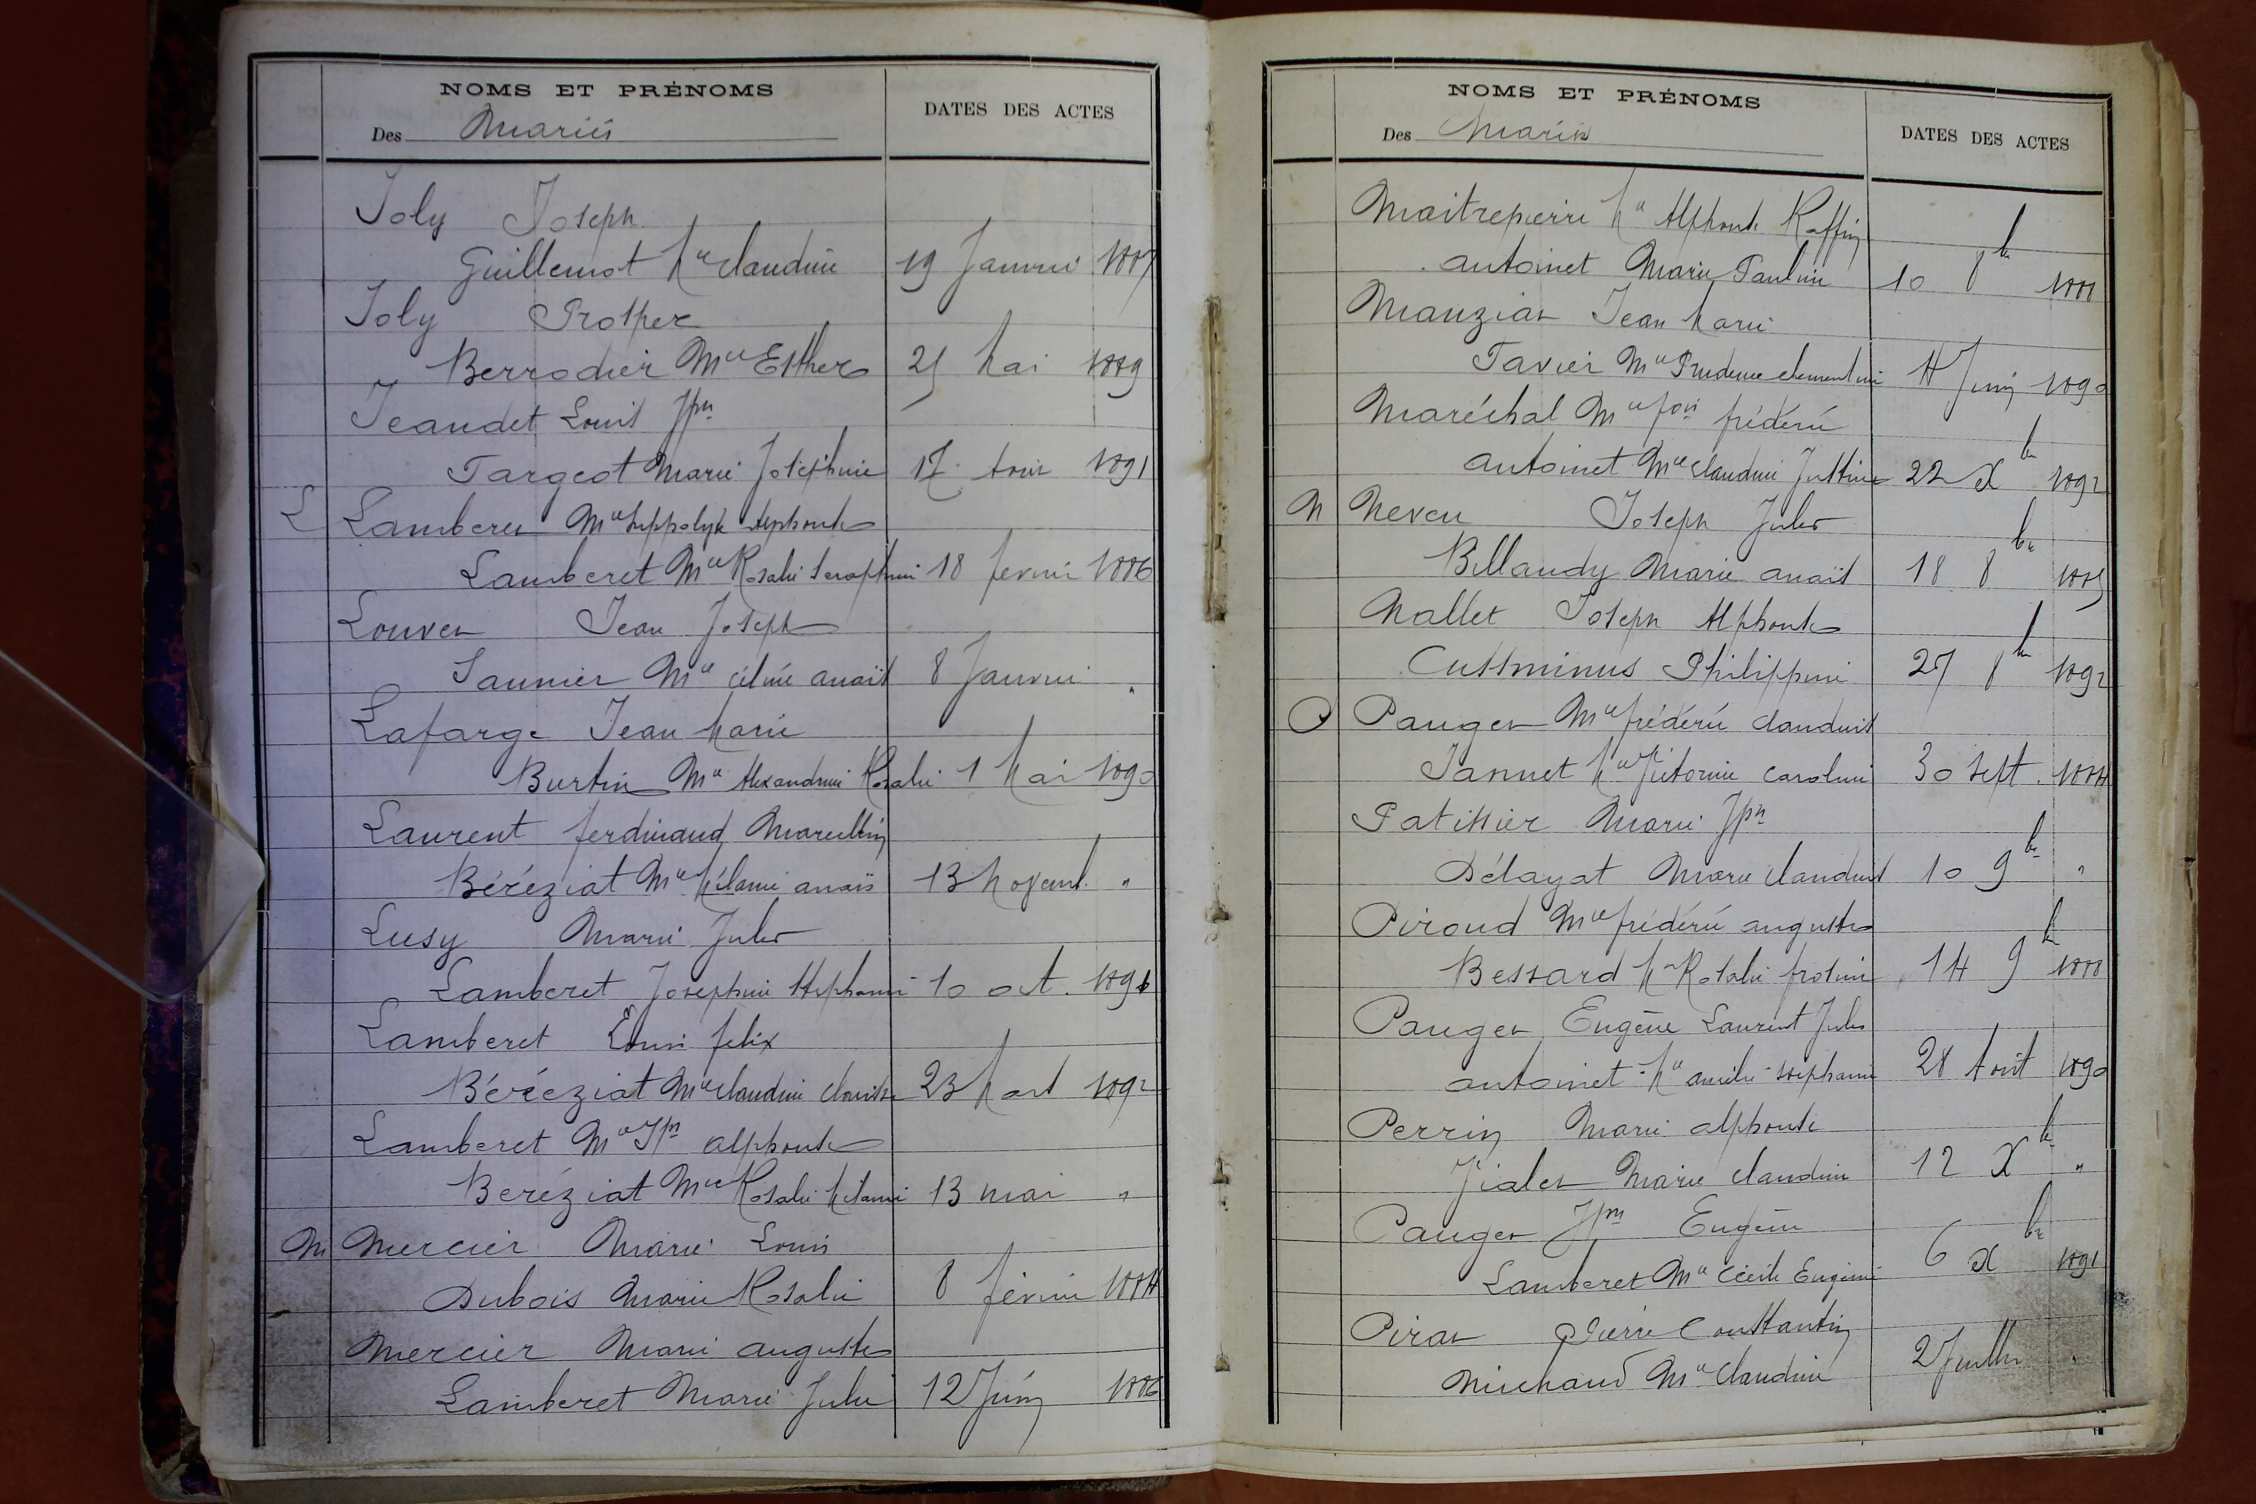 NOMS ET PRÉNOMS
Des Mariés
DATES DES ACTES
Joly Joseph
Guillemot Mie Claudine 19 Janvier 1887
Joly Prosper
Berrodier Mie Esther 25 Mai 1889
Jeandet Louis Jph
Targeot Marie Joséphine 17 1891
L Lamberet Mie hippolyte Alphonse
Lamberet Mie Rosalie Seraphine 18 fevrier 1886
Louvet Jean Joseph
Saunier Mie céline anaïs 8 Janvier "
Lafarge Jean Marie
Burtin Mie Alexandrine Rosalie 1 Mai 1890
Laurent ferdinand Marcellin
Béréziat Mie Mélanie anaïs 13 Novemb. "
Lusy Marie Jules
Lamberet Josephine Stephanie 10 oct. 1891
Lamberet Louis felix
Béréziat Mie Claudine Clarisse 23 Mars 1892
Lamberet Mie Jph alphonse
Beréziat Mie Rosalie Mélanie 13 mai "
M Mercier Marie Louis
Dubois Marie Rosalie 8 février 1884
Mercier Marie auguste
Lamberet Marie Julie 12 Juin 1886
NOMS ET PRÉNOMS
Des Mariés
DATES DES ACTES
Maitrepierre Mie Alphonse Raffin
antoinet Marie Pauline 10 8bre 1888
Mauziat Jean Marie
Tavier Mie Prudence clementine 4 Juin 1890
Maréchal Mie fois fréderic
antoinet Mie Claudine Justine 22 Xbre 1892
N Neveu Joseph Jules
Billaudy Marie anaïs 18 8bre 1885
Nallet Joseph Alphonse
Cussminus Philippine 27 8bre 1892
P Pauget Mie fréderic claudius
Jannet Mie Victorine Caroline 30 Sept. 1884
Patissier Marie Jph
Délayat Marie Claudine 10 9bre "
Piroud Mie fréderic auguste
Bessard Mie Rosalie frosine 14 9bre 1888
Pauget Eugène Laurent Jules
antoinet Mie amélie stephanie 28 Août 1890
Perrin Marie alphonse
Vialet Marie Claudine 12 Xbre "
Pauget Jph Eugène
Lamberet Mie Cécile Eugénie 6 Xbre 1891
Pirat Pierre Constantin
Michaud Mie Claudine 2 Juillet "